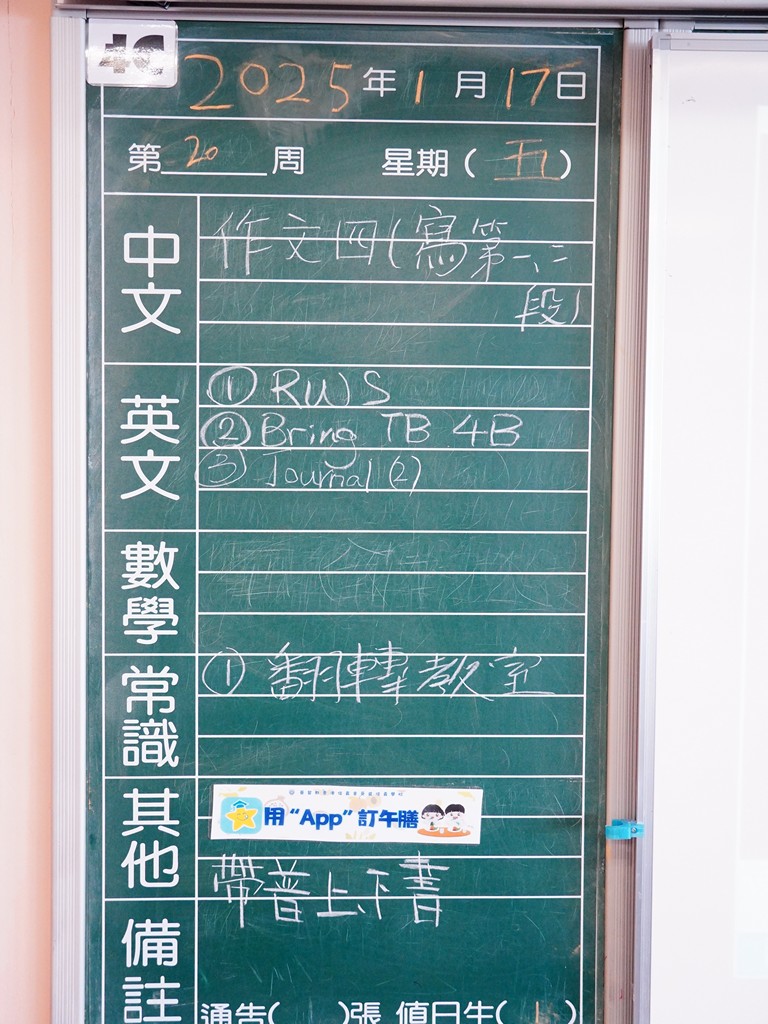 4C
2025年1月17日
第20周 星期(五)
中文
作文四(寫第一、二
段)
英文
① RWS
② Bring TB 4B
③ Journal (2)
數學
常識
① 翻轉教室
其他
用“App”訂午膳
帶普上、下書
備註
通告( )張 值日生(1)